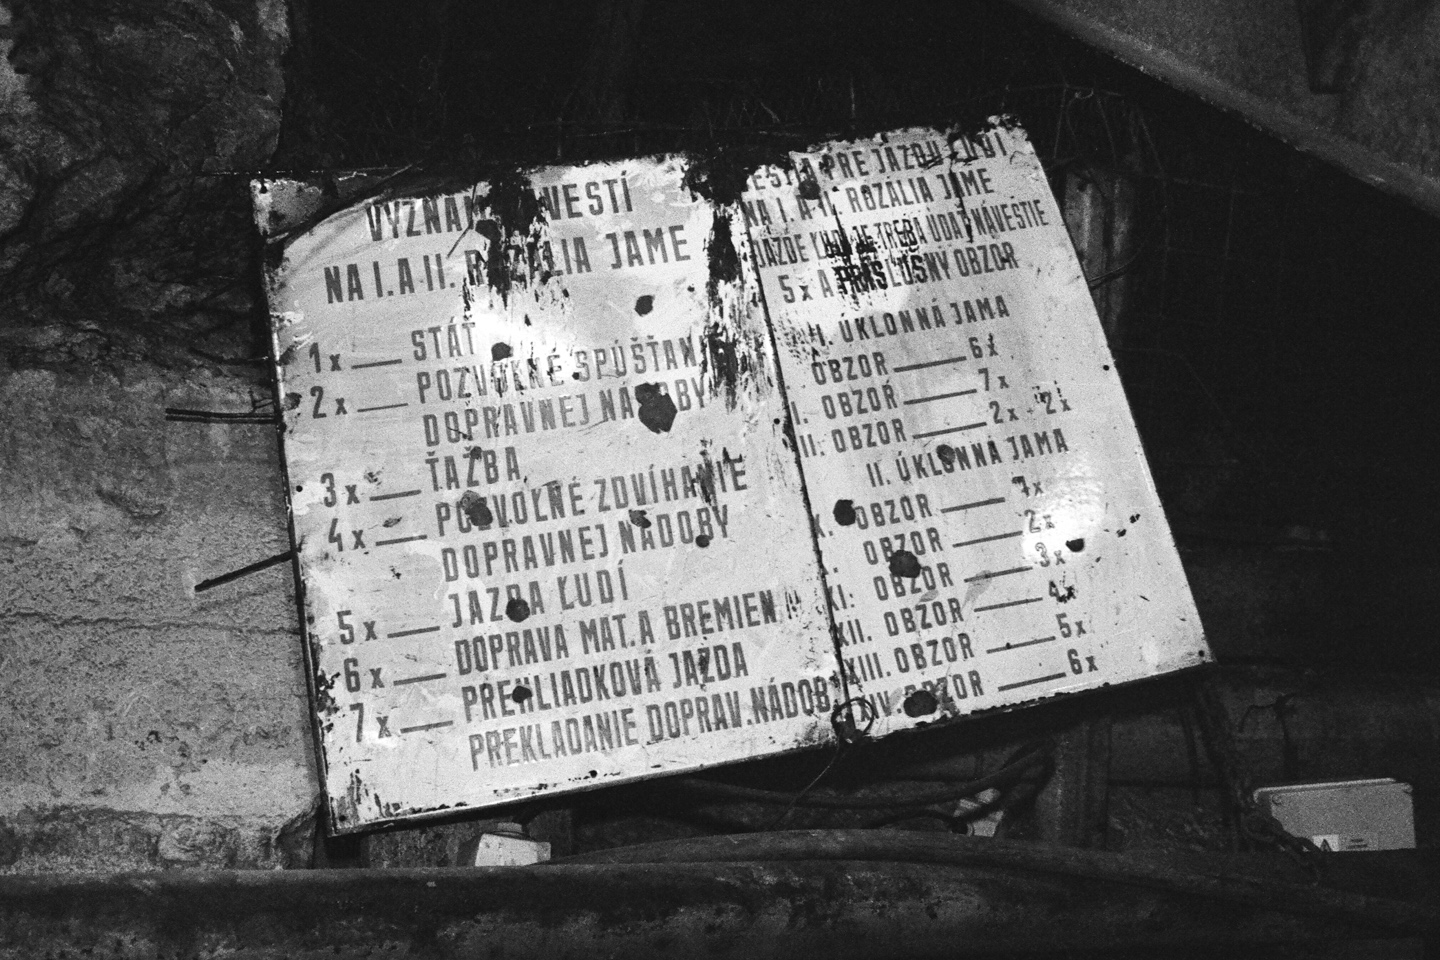 NA I. A II. ROZÁLIA JAME
1x — STÁŤ
2x — POZVOĽNÉ SPÚŠŤAN
DOPRAVNEJ NÁDOBY
3x — ŤAŽBA
4x — POZVOĽNÉ ZDVÍHANIE
DOPRAVNEJ NÁDOBY
5x — JAZDA ĽUDÍ
6x — DOPRAVA MAT. A BREMIEN
7x — PREHLIADKOVÁ JAZDA
PREKLADANIE DOPRAV. NÁDOB
PRE JAZDU ĽUDÍ
NA I. A II. ROZÁLIA JAME
JAZDE ĽUDÍ JE TREBA UDAŤ NÁVESTIE
5x A PRÍSLUŠNÝ OBZOR
I. ÚKLONNÁ JAMA
OBZOR — 6x
I. OBZOR — 7x
II. OBZOR — 2x + 2x
II. ÚKLONNÁ JAMA
X. OBZOR — 1x
OBZOR — 2x
XI. OBZOR — 3x
XII. OBZOR — 4x
XIII. OBZOR — 5x
XIV. OBZOR — 6x